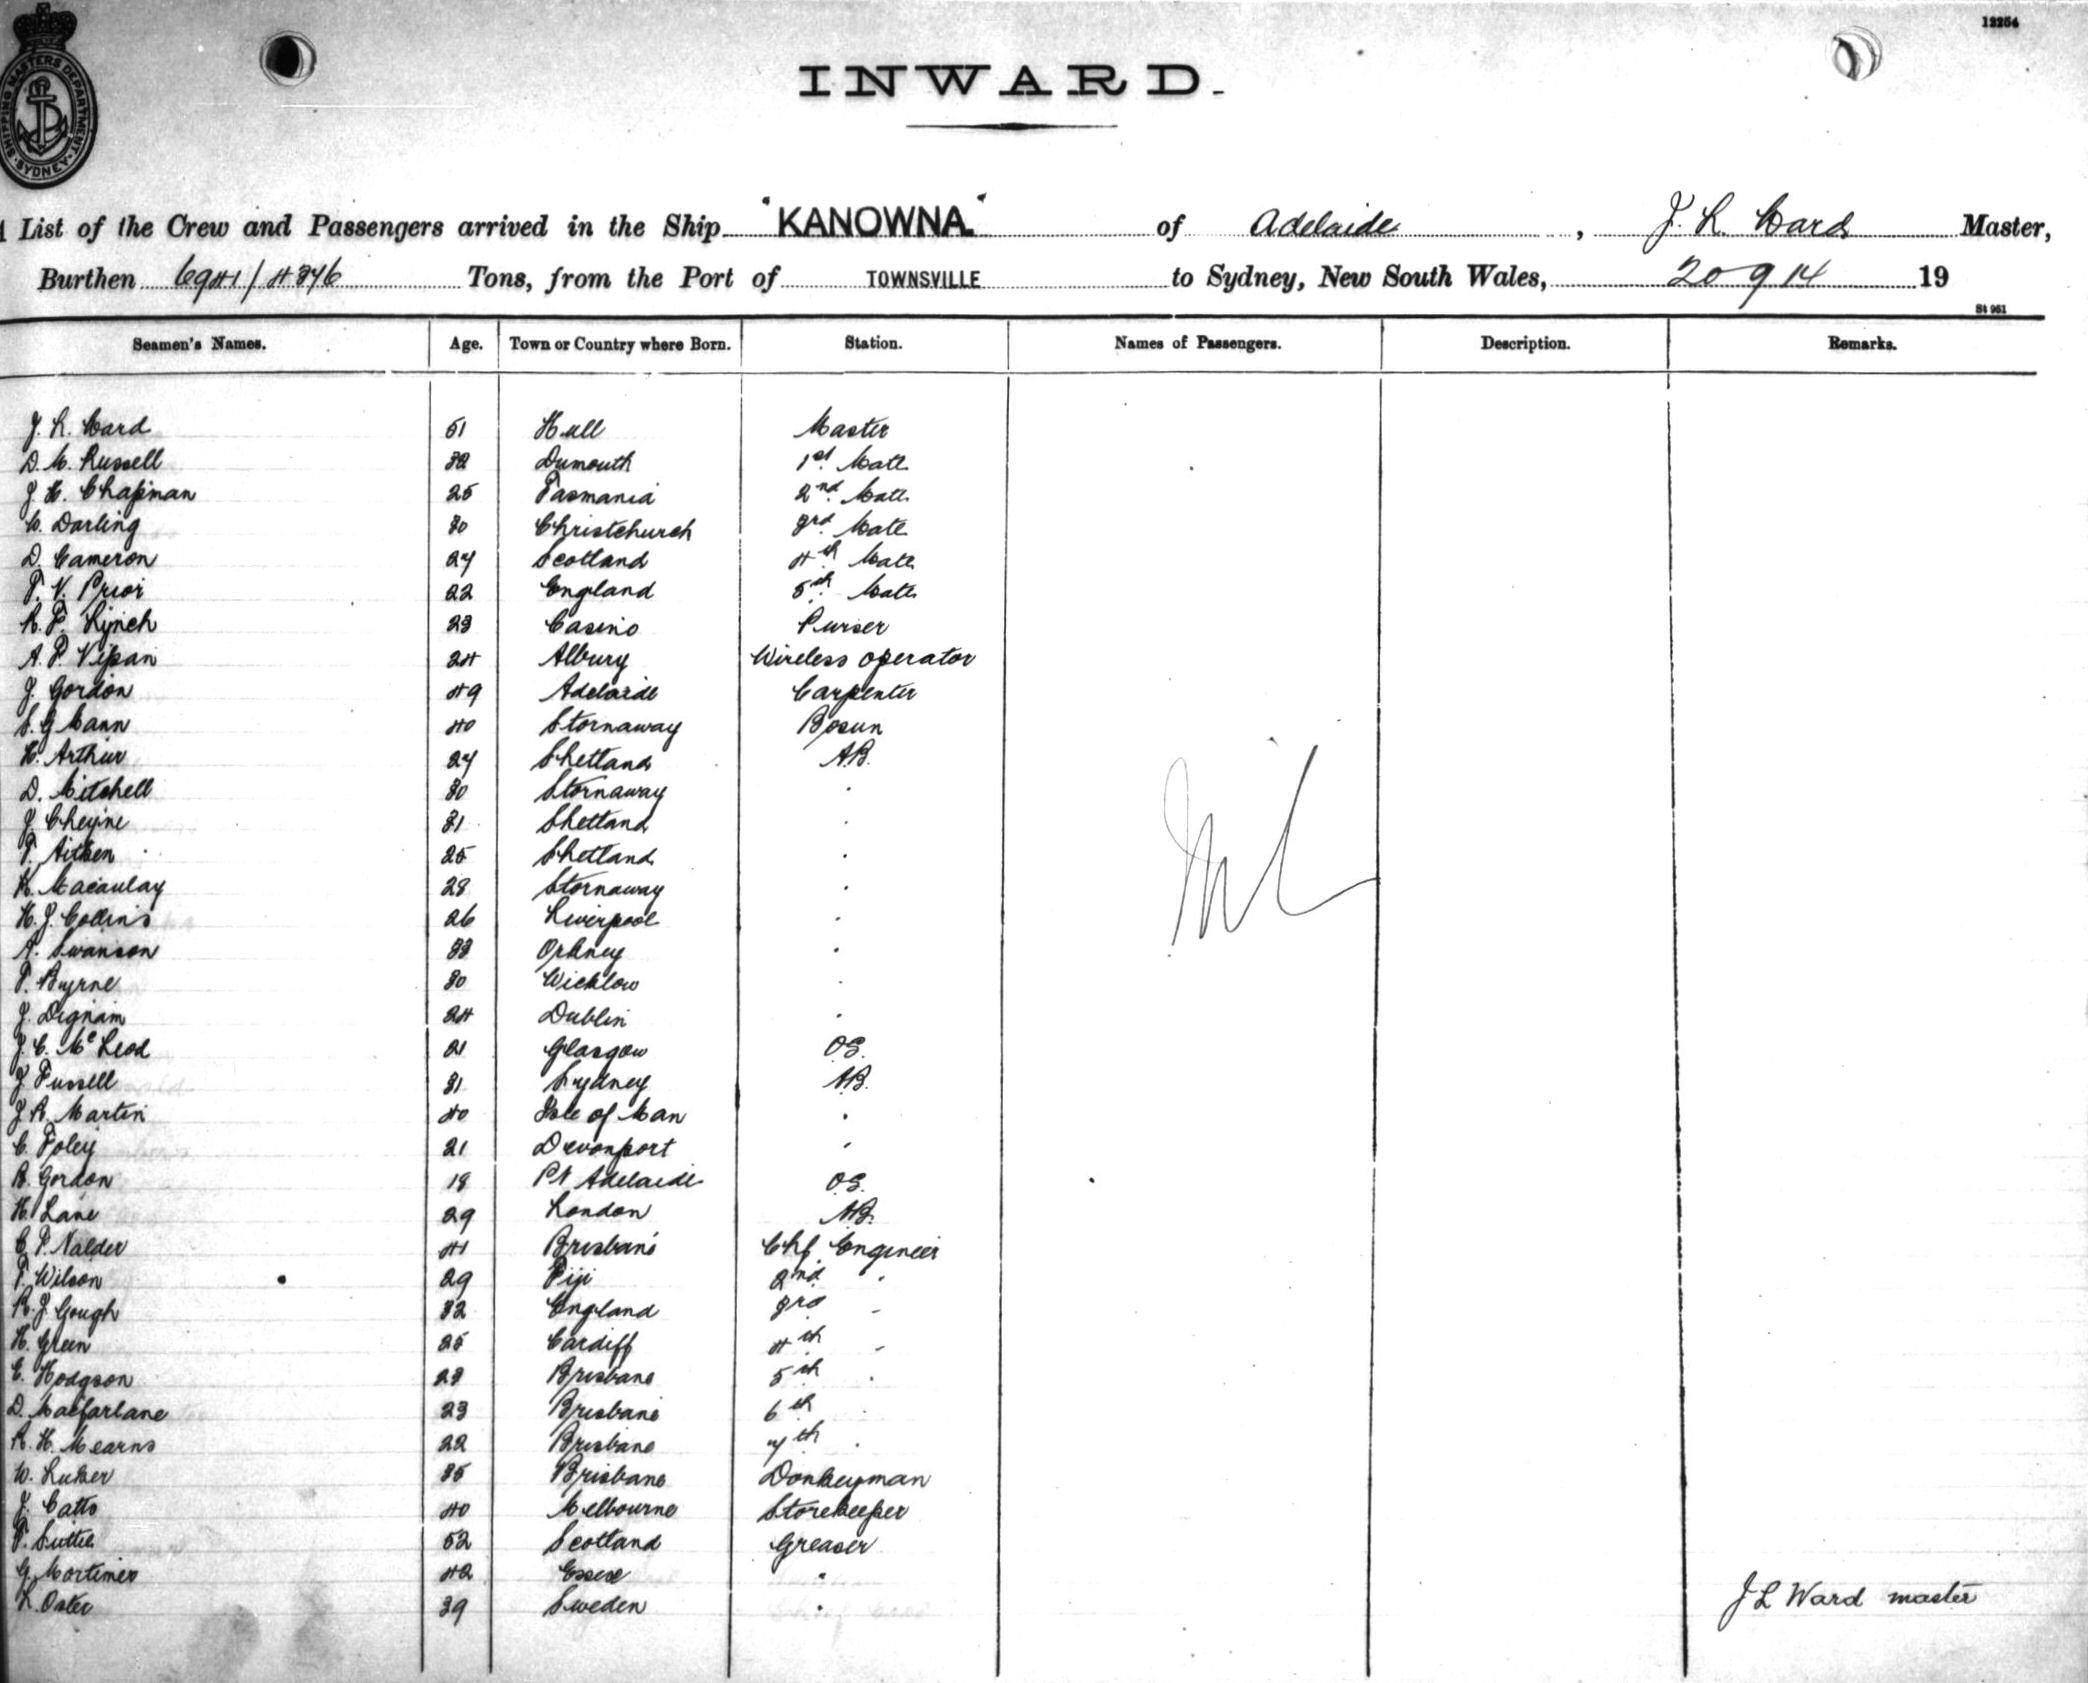 12254
SHIPPING MASTERS DEPARTMENT SYDNEY
INWARD.
List of the Crew and Passengers arrived in the Ship "KANOWNA" of Adelaide, J. L. Ward Master,
Burthen 6941/4376 Tons, from the Port of TOWNSVILLE to Sydney, New South Wales, 20 9 14 19
St 951
Seamen's Names. Age. Town or Country where Born. Station. Names of Passengers. Description. Remarks.
J. L. Ward 51 Hull Master
D. M. Russell 32 1st Mate
J. H. Chapman 25 Tasmania 2nd Mate
C. Darling 30 Christchurch 3rd Mate
D. Cameron 27 Scotland 4th Mate
T. V. Prior 22 England 5th Mate
R. F. Lynch 23 Casino Purser
A. T. Vipan 24 Albury Wireless operator
J. Gordon 49 Adelaide Carpenter
S. G. Mann 40 Stornaway Bosun
H. Arthur 27 Shetland A.B.
D. Mitchell 30 Stornaway "
J. Cheyne 31 Shetland "
T. Aitken 25 Shetland "
K. Macaulay 28 Stornaway "
H. J. Collins 26 Liverpool "
A. Swanson 33 Orkney "
T. Byrne 30 Wicklow "
J. Dignam 24 Dublin "
J. C. McLeod 21 Glasgow O.S.
J. Fussell 31 Sydney A.B.
J. R. Martin 40 Isle of Man "
C. Foley 21 Devonport "
R. Gordon 18 Pt Adelaide O.S.
H. Lane 29 London A.B.
C. T. Nalder 41 Brisbane Chf Engineer
T. Wilson 29 Fiji 2nd "
R. J. Gough 32 England 3rd "
H. Green 25 Cardiff 4th "
E. Hodgson 23 Brisbane 5th "
D. Macfarlane 23 Brisbane 6th "
R. H. Mearns 22 Brisbane 7th "
W. Luker 35 Brisbane Donkeyman
J. Catto 40 Melbourne Storekeeper
T. Suttie 52 Scotland Greaser
G. Mortimer 42 Essex "
L. Oster 39 Sweden "
Nil
J L Ward master